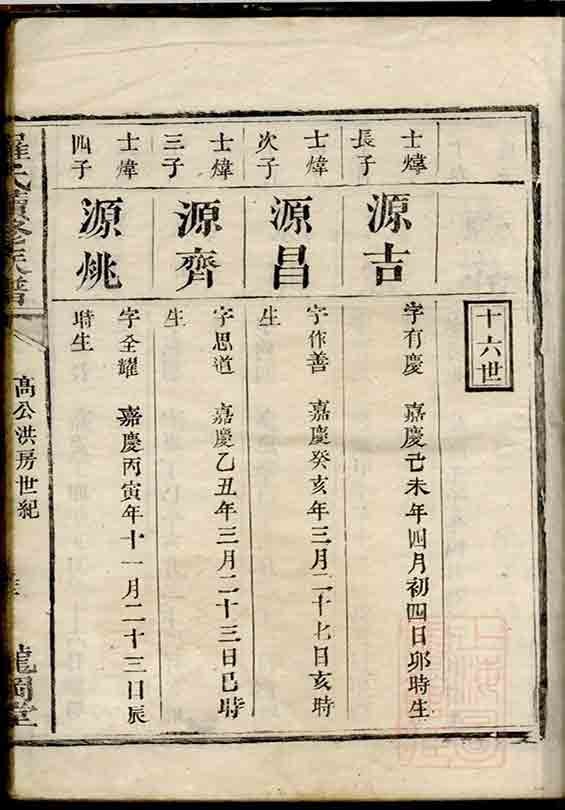 十六世
士煒
長子
源吉
字有慶 嘉慶己未年四月初四日卯時生
士煒
次子
源昌
字作善 嘉慶癸亥年三月二十七日亥時
生
士煒
三子
源齊
字思道 嘉慶乙丑年三月二十三日巳時
生
士煒
四子
源姚
字全耀 嘉慶丙寅年十一月二十三日辰
時生
羅氏續修族譜
高公洪房世紀
龍岡堂